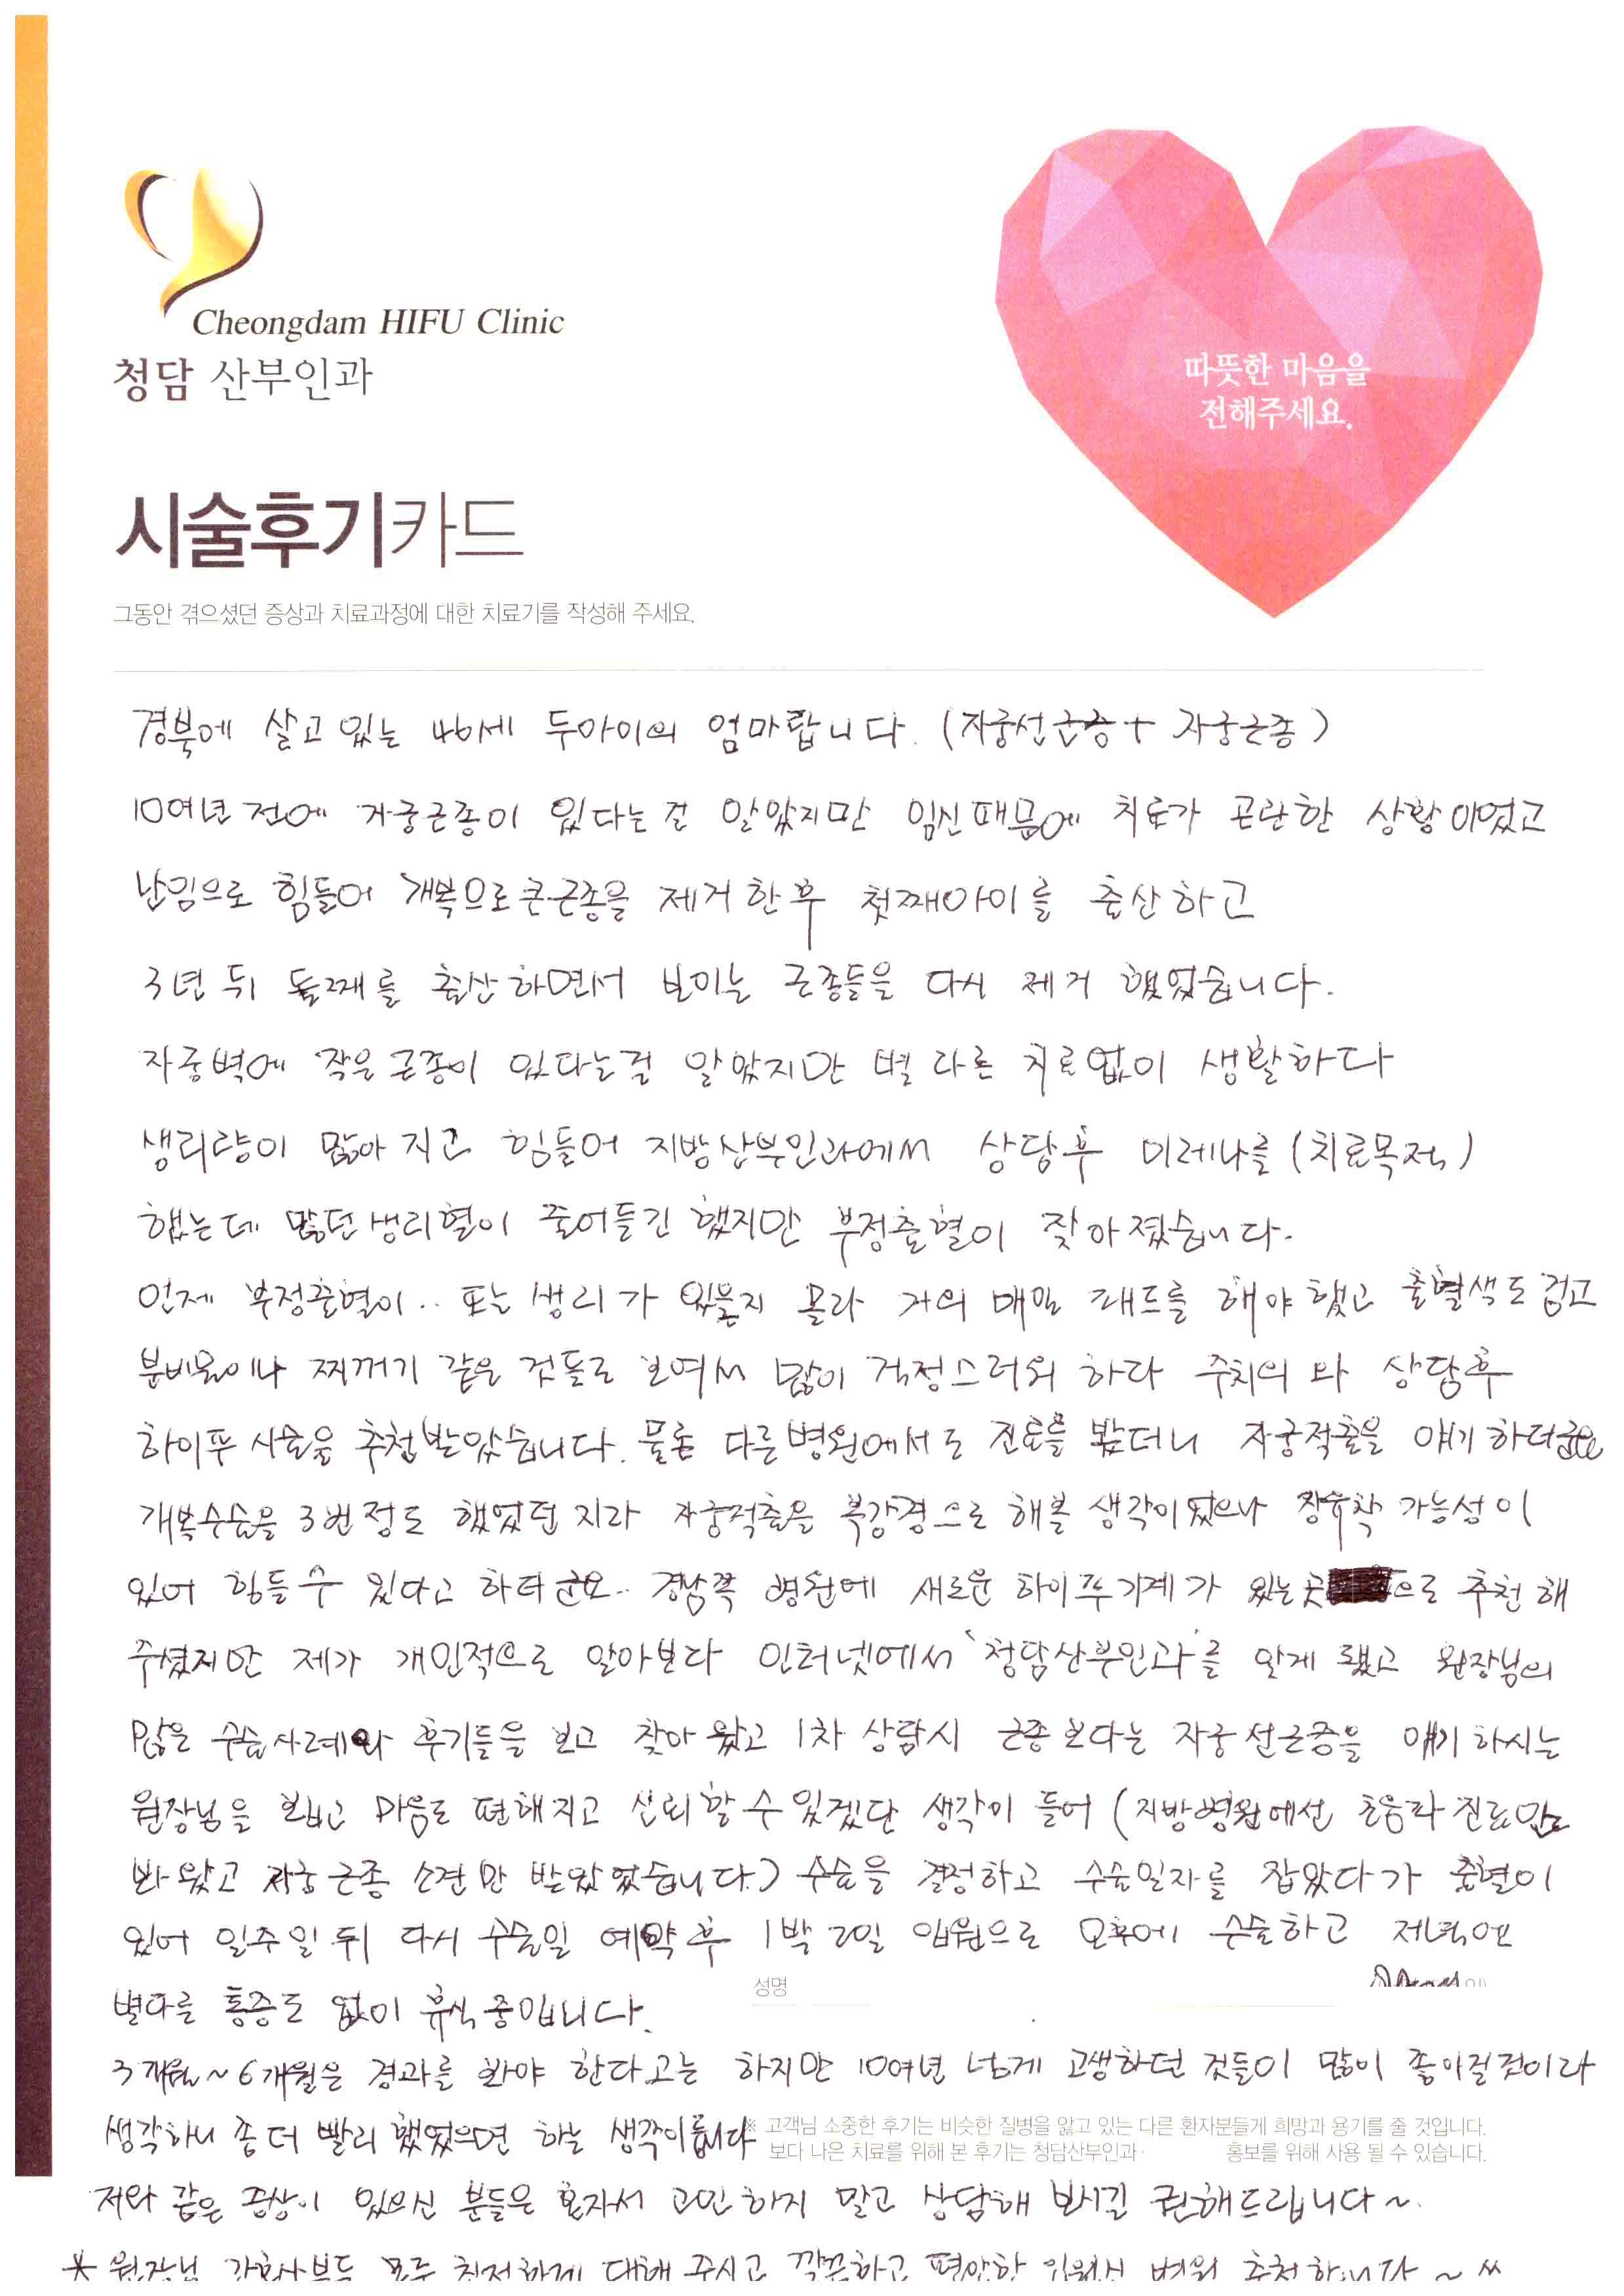 Cheongdam HIFU Clinic
청담 산부인과
따뜻한 마음을
전해주세요.
시술후기카드
그동안 겪으셨던 증상과 치료과정에 대한 치료기를 작성해 주세요.
경북에 살고 있는 46세 두아이의 엄마랍니다. (자궁선근증 + 자궁근종)
10여년 전에 자궁근종이 있다는 걸 알았지만 임신때문에 치료가 곤란한 상황이었고
난임으로 힘들어 개복으로 큰근종을 제거한 후 첫째아이를 출산하고
3년 뒤 둘째를 출산하면서 보이는 근종들을 다시 제거 했었습니다.
자궁벽에 작은 근종이 있다는걸 알았지만 별 다른 치료없이 생활하다
생리량이 많아 지고 힘들어 지방산부인과에서 상담후 미레나를 (치료목적)
했는데 많던 생리혈이 줄어들긴 했지만 부정출혈이 잦아졌습니다.
언제 부정출혈이.. 또는 생리가 있을지 몰라 거의 매일 패드를 해야 했고 출혈색도 검고
분비물이나 찌꺼기 같은 것들로 보여서 많이 걱정스러워 하다 주치의 와 상담후
하이푸 시술을 추천받았습니다. 물론 다른병원에서도 진료를 봤더니 자궁적출을 얘기 하더군요
개복수술을 3번정도 했었던 지라 자궁적출은 복강경으로 해볼 생각이었으나 장유착 가능성이
있어 힘들 수 있다고 하더군요.. 경남쪽 병원에 새로운 하이푸기계가 있는곳으로 추천해
주셨지만 제가 개인적으로 알아보다 인터넷에서 '청담산부인과'를 알게 됐고 원장님의
많은 수술사례와 후기들을 보고 찾아 왔고 1차 상담시 근종보다는 자궁선근증을 얘기 하시는
원장님을 뵙고 마음도 편해지고 신뢰할 수 있겠단 생각이 들어 (지방병원에선 초음파 진료만
봐왔고 자궁근종 소견만 받았었습니다.) 수술을 결정하고 수술일자를 잡았다가 출혈이
있어 일주일 뒤 다시 수술일 예약 후 1박 2일 입원으로 오후에 수술하고 저녁엔
성명
별다를 통증도 없이 휴식 중입니다.
3개월~6개월은 경과를 봐야 한다고는 하지만 10여년 넘게 고생하던 것들이 많이 좋아질것이라
생각하니 좀 더 빨리 했었으면 하는 생각이듭니다
※ 고객님 소중한 후기는 비슷한 질병을 앓고 있는 다른 환자분들게 희망과 용기를 줄 것입니다.
보다 나은 치료를 위해 본 후기는 청담산부인과 홍보를 위해 사용 될 수 있습니다.
저와 같은 증상이 있으신 분들은 혼자서 고민하지 말고 상담해 보시길 권해드립니다~.
* 원장님 간호사분들 모두 친절하게 대해 주시고 깔끔하고 편안한 입원실 병원 추천합니다~^^